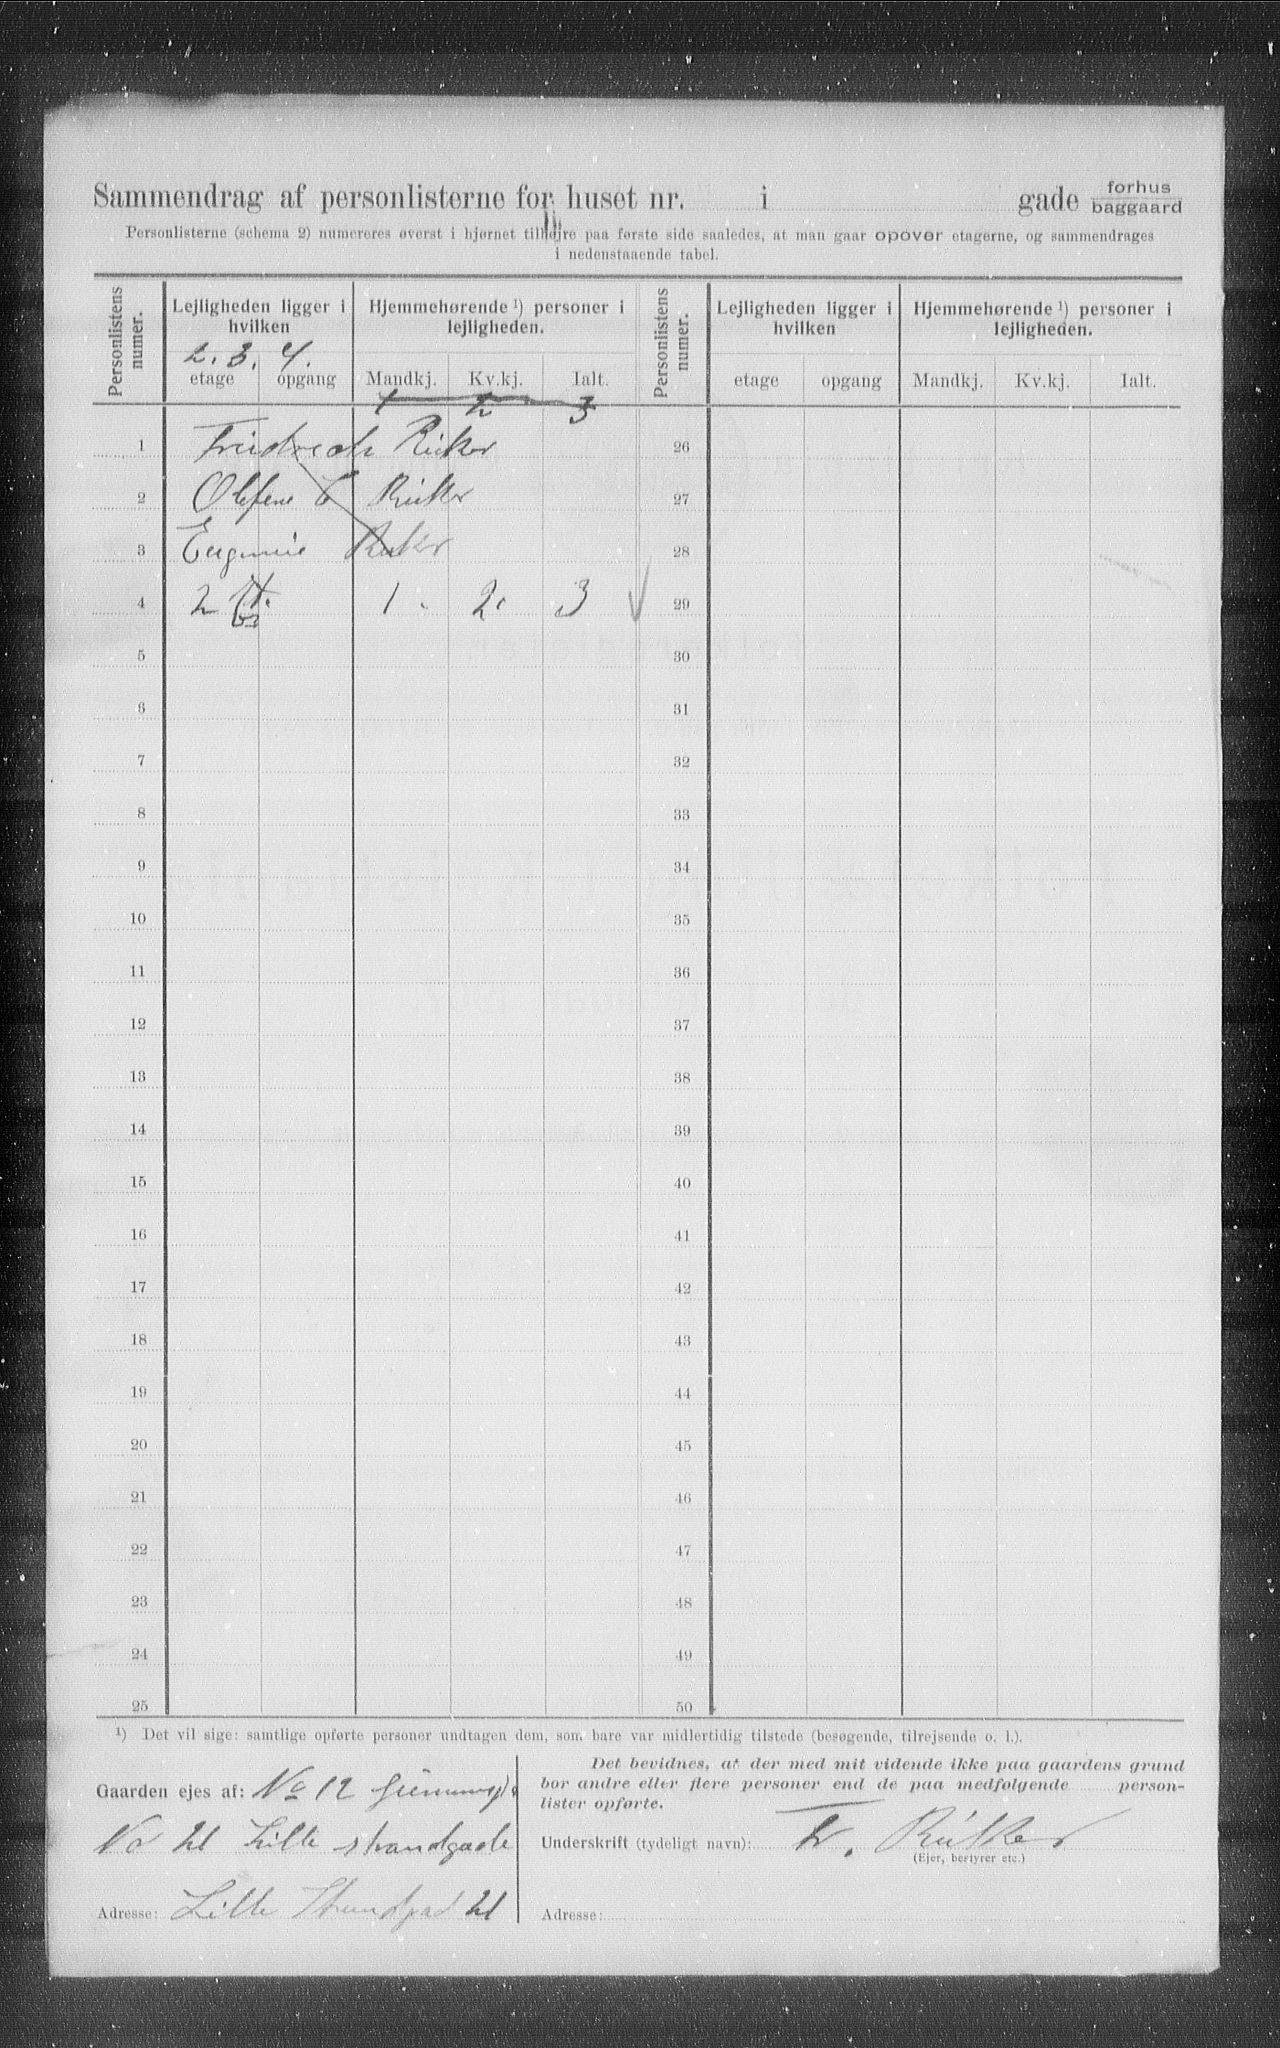 Sammendrag af personlisterne for huset nr. i gade forhus baggaard
Personlisterne (schema 2) numereres øverst i hjørnet tilhøjre paa første side saaledes, at man gaar opover etagerne, og sammendrages
i nedenstaaende tabel.
Personlistens numer.
Lejligheden ligger i hvilken
2. 3. 4.
etage opgang
Hjemmehørende ¹) personer i lejligheden.
Mandkj. Kv.kj. Ialt.
Personlistens numer.
Lejligheden ligger i hvilken
etage opgang
Hjemmehørende ¹) personer i lejligheden.
Mandkj. Kv.kj. Ialt.
1 2 3
1 Friedrech Rüker 26
2 Olefene Rüker 27
3 Eugenie Rüker 28
4 2 1 2 3 29
5 30
6 31
7 32
8 33
9 34
10 35
11 36
12 37
13 38
14 39
15 40
16 41
17 42
18 43
19 44
20 45
21 46
22 47
23 48
24 49
25 50
¹) Det vil sige: samtlige opførte personer undtagen dem, som bare var midlertidig tilstede (besøgende, tilrejsende o. l.).
Gaarden ejes af: No 12
No 21 Lille strandgade
Adresse: Lille Strandgad 21
Det bevidnes, at der med mit vidende ikke paa gaardens grund
bor andre eller flere personer end de paa medfølgende person-
lister opførte.
Underskrift (tydeligt navn): Fr. Rüker
(Ejer, bestyrer etc.)
Adresse: